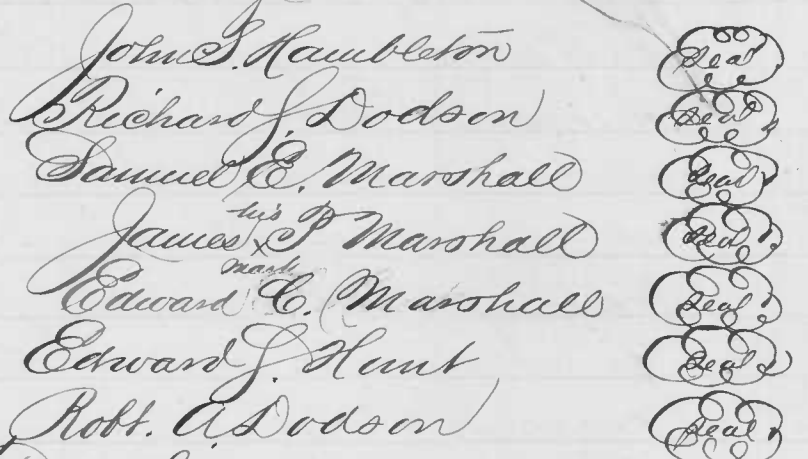 John S. Hambleton Seal
Richard J. Dodson Seal
Samuel E. Marshall Seal
his
James x P Marshall Seal
mark
Edward C. Marshall Seal
Edward J. Hunt Seal
Robt. A. Dodson Seal